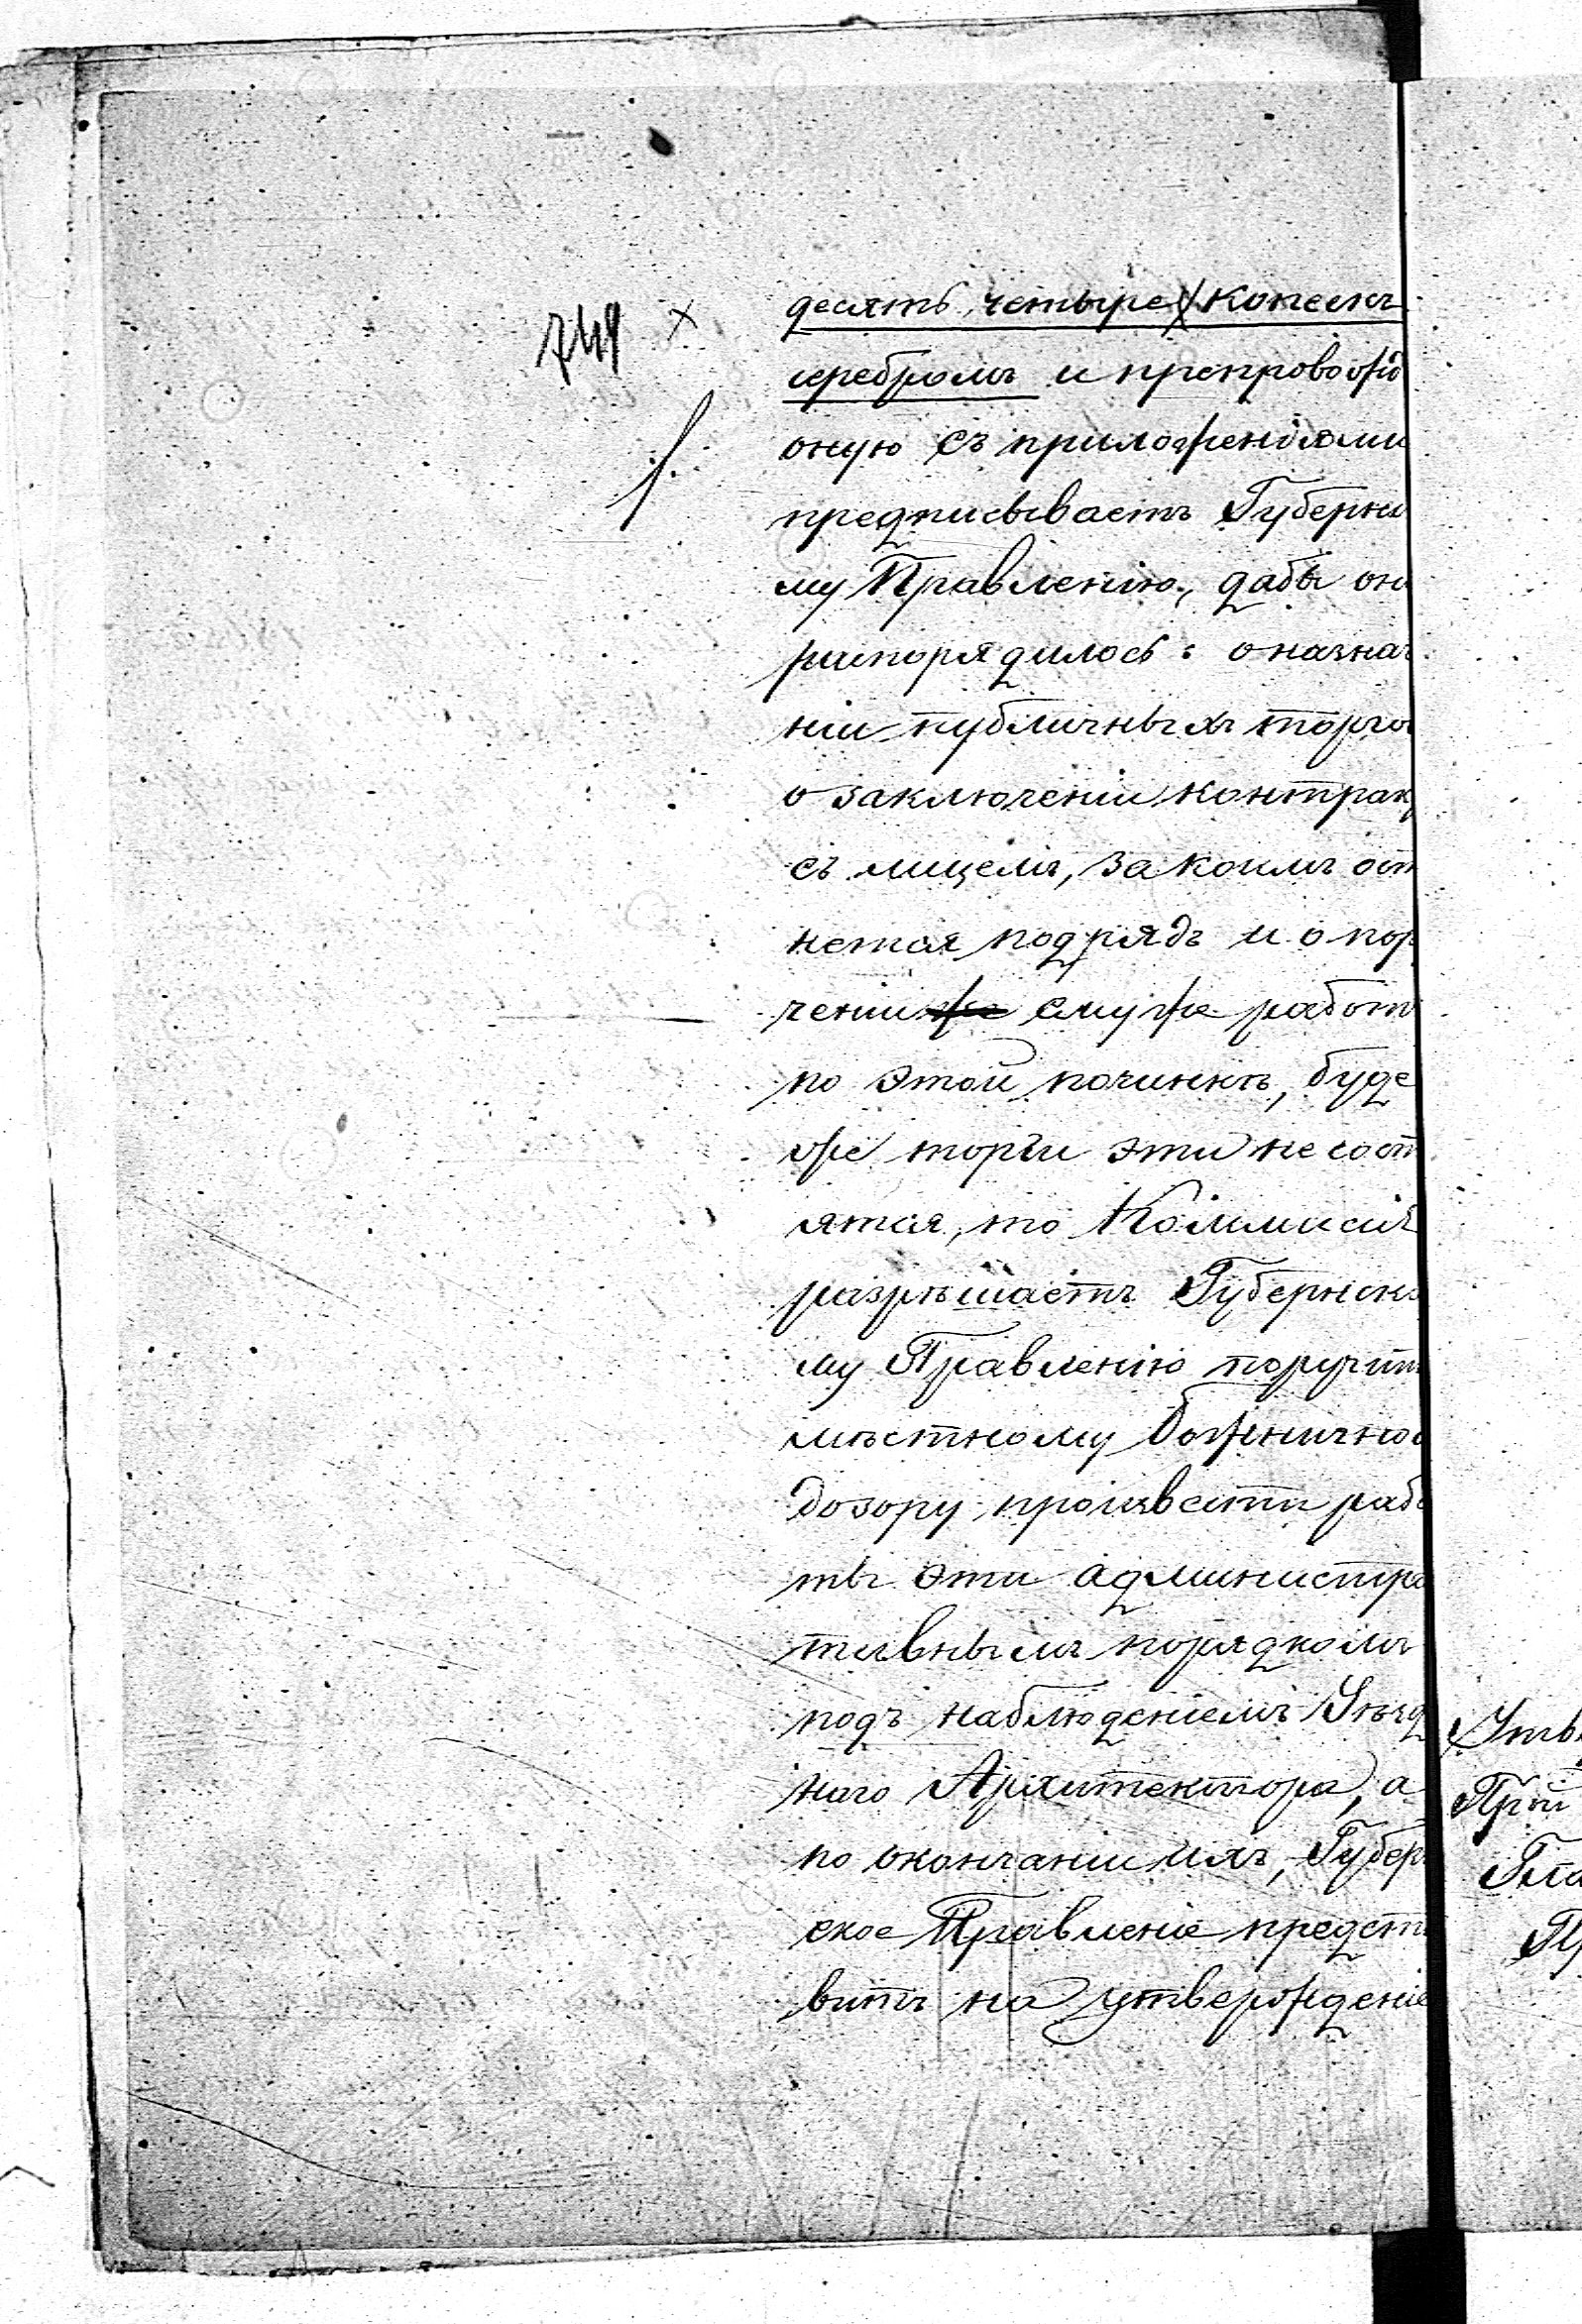 749
десять четыре копѣекъ
серебромъ и препровожд
оную съ приложеніями
предписываетъ Губернс
му Правленію, дабы он
распорядилось: о назнач
ніи публичныхъ торго
о заключеніи контрак
съ лицемъ, за коимъ ост
нется подрядъ и о пор
ченіи же ему же работ
по этой починкѣ, буде
же торги эти не сост
ятся, то Коммисія
разрѣшаетъ Губернско
му Правленію поручит
мѣстному Божничном
дозору произвести рабо
ты эти администра
тивнымъ порядкомъ
подъ наблюденіемъ Уѣзд
наго Архитектора, а
по окончаніи ихъ, Губерн
ское Правленіе предст
витъ на утвержденіе